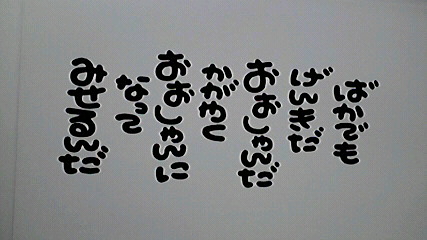 ばかでも
げんきだ
おおしゃんだ
かがやく
おおしゃんに
なって
みせるんだ